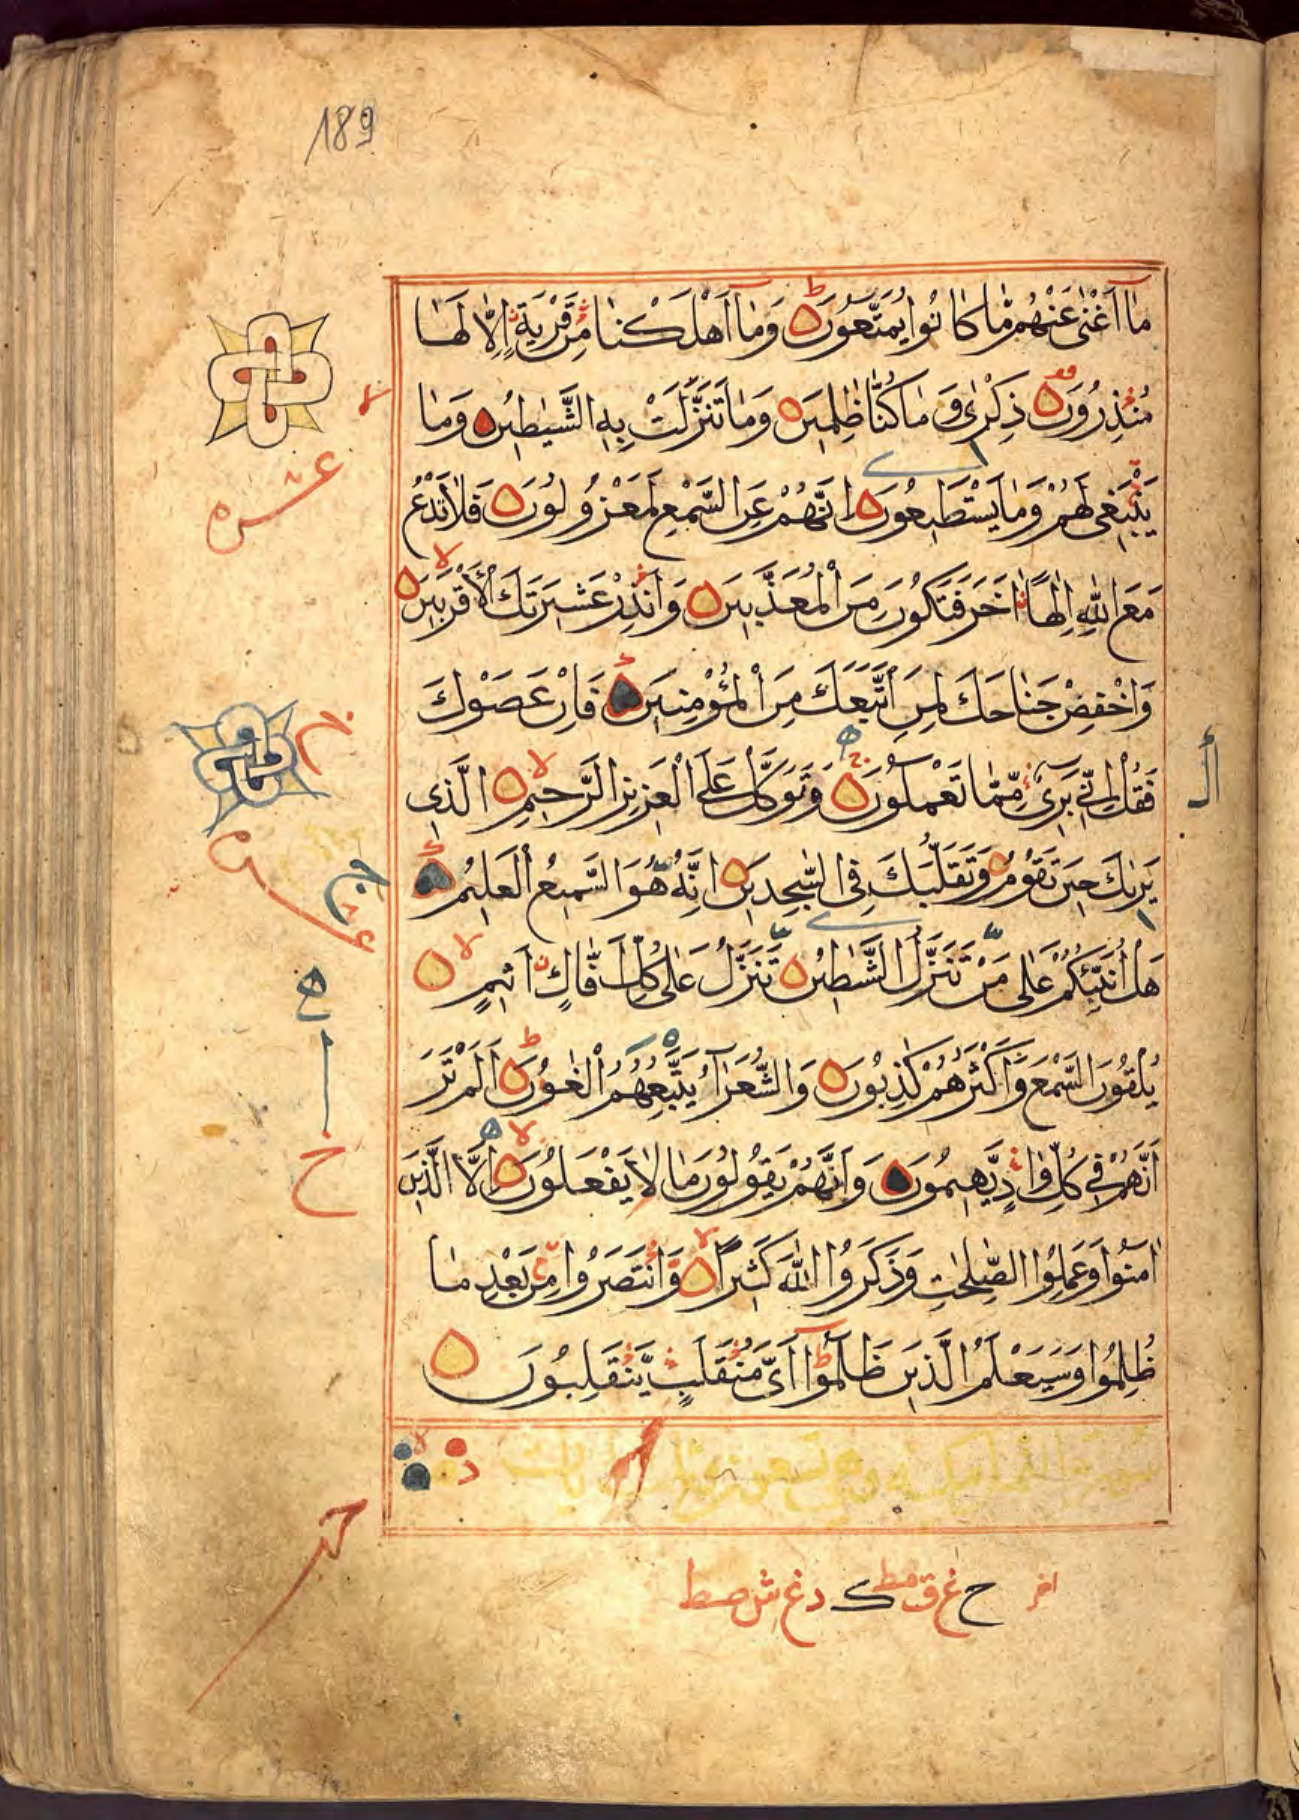 189
مَا أَغْنٰى عَنْهُمْ مَّا كَانُوا يُمَتَّعُونَ ط وَمَا أَهْلَكْنَا مِنْ قَرْيَةٍ إِلَّا لَهَا
مُنْذِرُونَ ذِكْرٰى وَمَا كُنَّا ظٰلِمِينَ وَمَا تَنَزَّلَتْ بِهِ الشَّيٰطِينُ وَمَا
يَنْبَغِى لَهُمْ وَمَا يَسْتَطِيعُونَ إِنَّهُمْ عَنِ السَّمْعِ لَمَعْزُولُونَ فَلَا تَدْعُ
مَعَ اللّٰهِ إِلٰهًا اٰخَرَ فَتَكُونَ مِنَ الْمُعَذَّبِينَ وَأَنْذِرْ عَشِيرَتَكَ الْأَقْرَبِينَ لا
وَاخْفِضْ جَنَاحَكَ لِمَنِ اتَّبَعَكَ مِنَ الْمُؤْمِنِينَ فَإِنْ عَصَوْكَ
فَقُلْ إِنِّى بَرِىءٌ مِّمَّا تَعْمَلُونَ ج وَتَوَكَّلْ عَلَى الْعَزِيزِ الرَّحِيمِ لا الَّذِى
يَرٰىكَ حِينَ تَقُومُ وَتَقَلُّبَكَ فِى السّٰجِدِينَ إِنَّهُ هُوَ السَّمِيعُ الْعَلِيمُ
هَلْ أُنَبِّئُكُمْ عَلٰى مَنْ تَنَزَّلُ الشَّيٰطِينُ تَنَزَّلُ عَلٰى كُلِّ أَفَّاكٍ أَثِيمٍ لا
يُلْقُونَ السَّمْعَ وَأَكْثَرُهُمْ كٰذِبُونَ وَالشُّعَرَاءُ يَتَّبِعُهُمُ الْغَاوُنَ ط أَلَمْ تَرَ
أَنَّهُمْ فِى كُلِّ وَادٍ يَّهِيمُونَ وَأَنَّهُمْ يَقُولُونَ مَا لَا يَفْعَلُونَ لا إِلَّا الَّذِينَ
اٰمَنُوا وَعَمِلُوا الصّٰلِحٰتِ وَذَكَرُوا اللّٰهَ كَثِيرًا وَّانْتَصَرُوا مِنْ بَعْدِ مَا
ظُلِمُوا وَسَيَعْلَمُ الَّذِينَ ظَلَمُوا أَىَّ مُنْقَلَبٍ يَّنْقَلِبُونَ